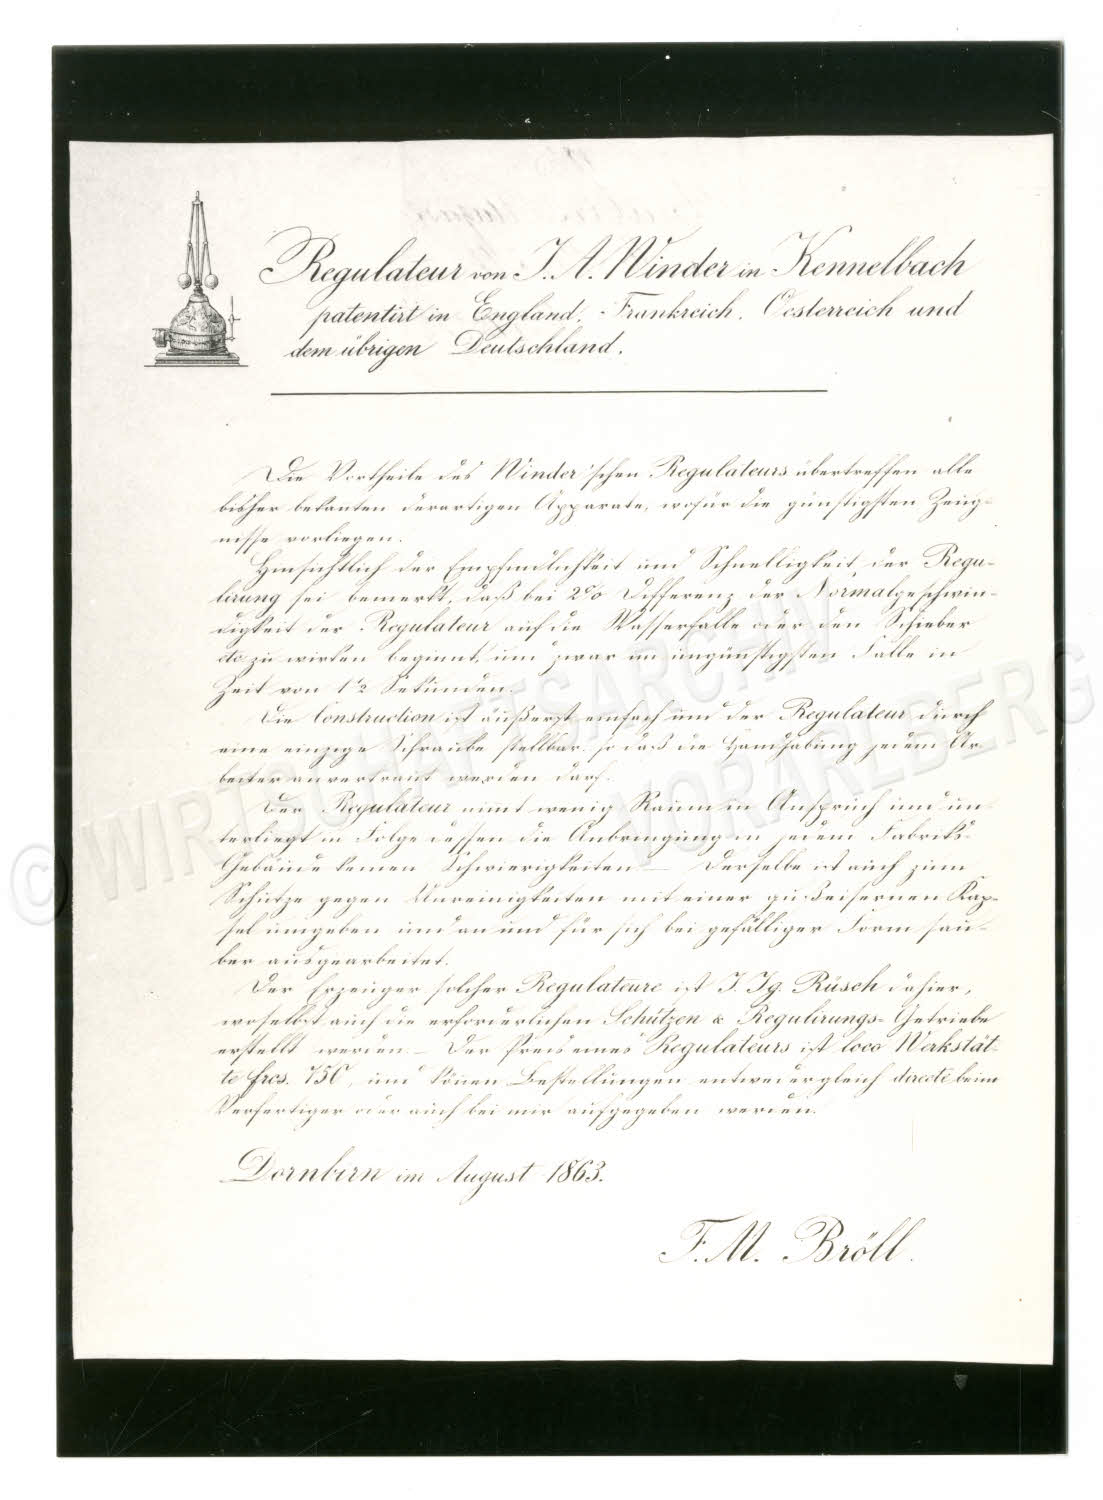 Regulateur von J. A. Winder in Kennelbach
patentirt in England, Frankreich, Oesterreich und
dem übrigen Deutschland.
Die Vortheile des Winder'schen Regulateurs übertreffen alle
bisher bekanten derartigen Apparate, wofür die günstigsten Zeug-
nisse vorliegen.
Hinsichtlich der Empfindlichkeit und Schnelligkeit der Regu-
lirung sei bemerkt, daß bei 2% Differenz der Normalgeschwin-
digkeit der Regulateur auf die Wasserfalle oder den Schieber
etc zu wirken beginnt, und zwar im ungünstigsten Falle in
Zeit von 1½ Sekunden.
Die Construction ist äußerst einfach und der Regulateur durch
eine einzige Schraube stellbar, so daß die Handhabung jedem Ar-
beiter anvertraut werden darf.
Der Regulateur nimt wenig Raum in Anspruch und un-
terliegt in Folge dessen die Anbringung in jedem Fabriks-
Gebäude keinen Schwierigkeiten. — Derselbe ist auch zum
Schutze gegen Unreinigkeiten mit einer gußeisernen Kap-
sel umgeben und an und für sich bei gefälliger Form sau-
ber ausgearbeitet.
Der Erzeuger solcher Regulateure ist J. Ig. Rüsch dahier,
woselbst auch die erforderlichen Schützen & Regulirungs-Getriebe
erstellt werden. — Der Preis eines Regulateurs ist loco Werkstät-
te frcs. 750, und könen Bestellungen entweder gleich directe beim
Verfertiger oder auch bei mir aufgegeben werden.
Dornbirn im August 1863.
F. M. Bröll.
© WIRTSCHAFTSARCHIV
VORARLBERG